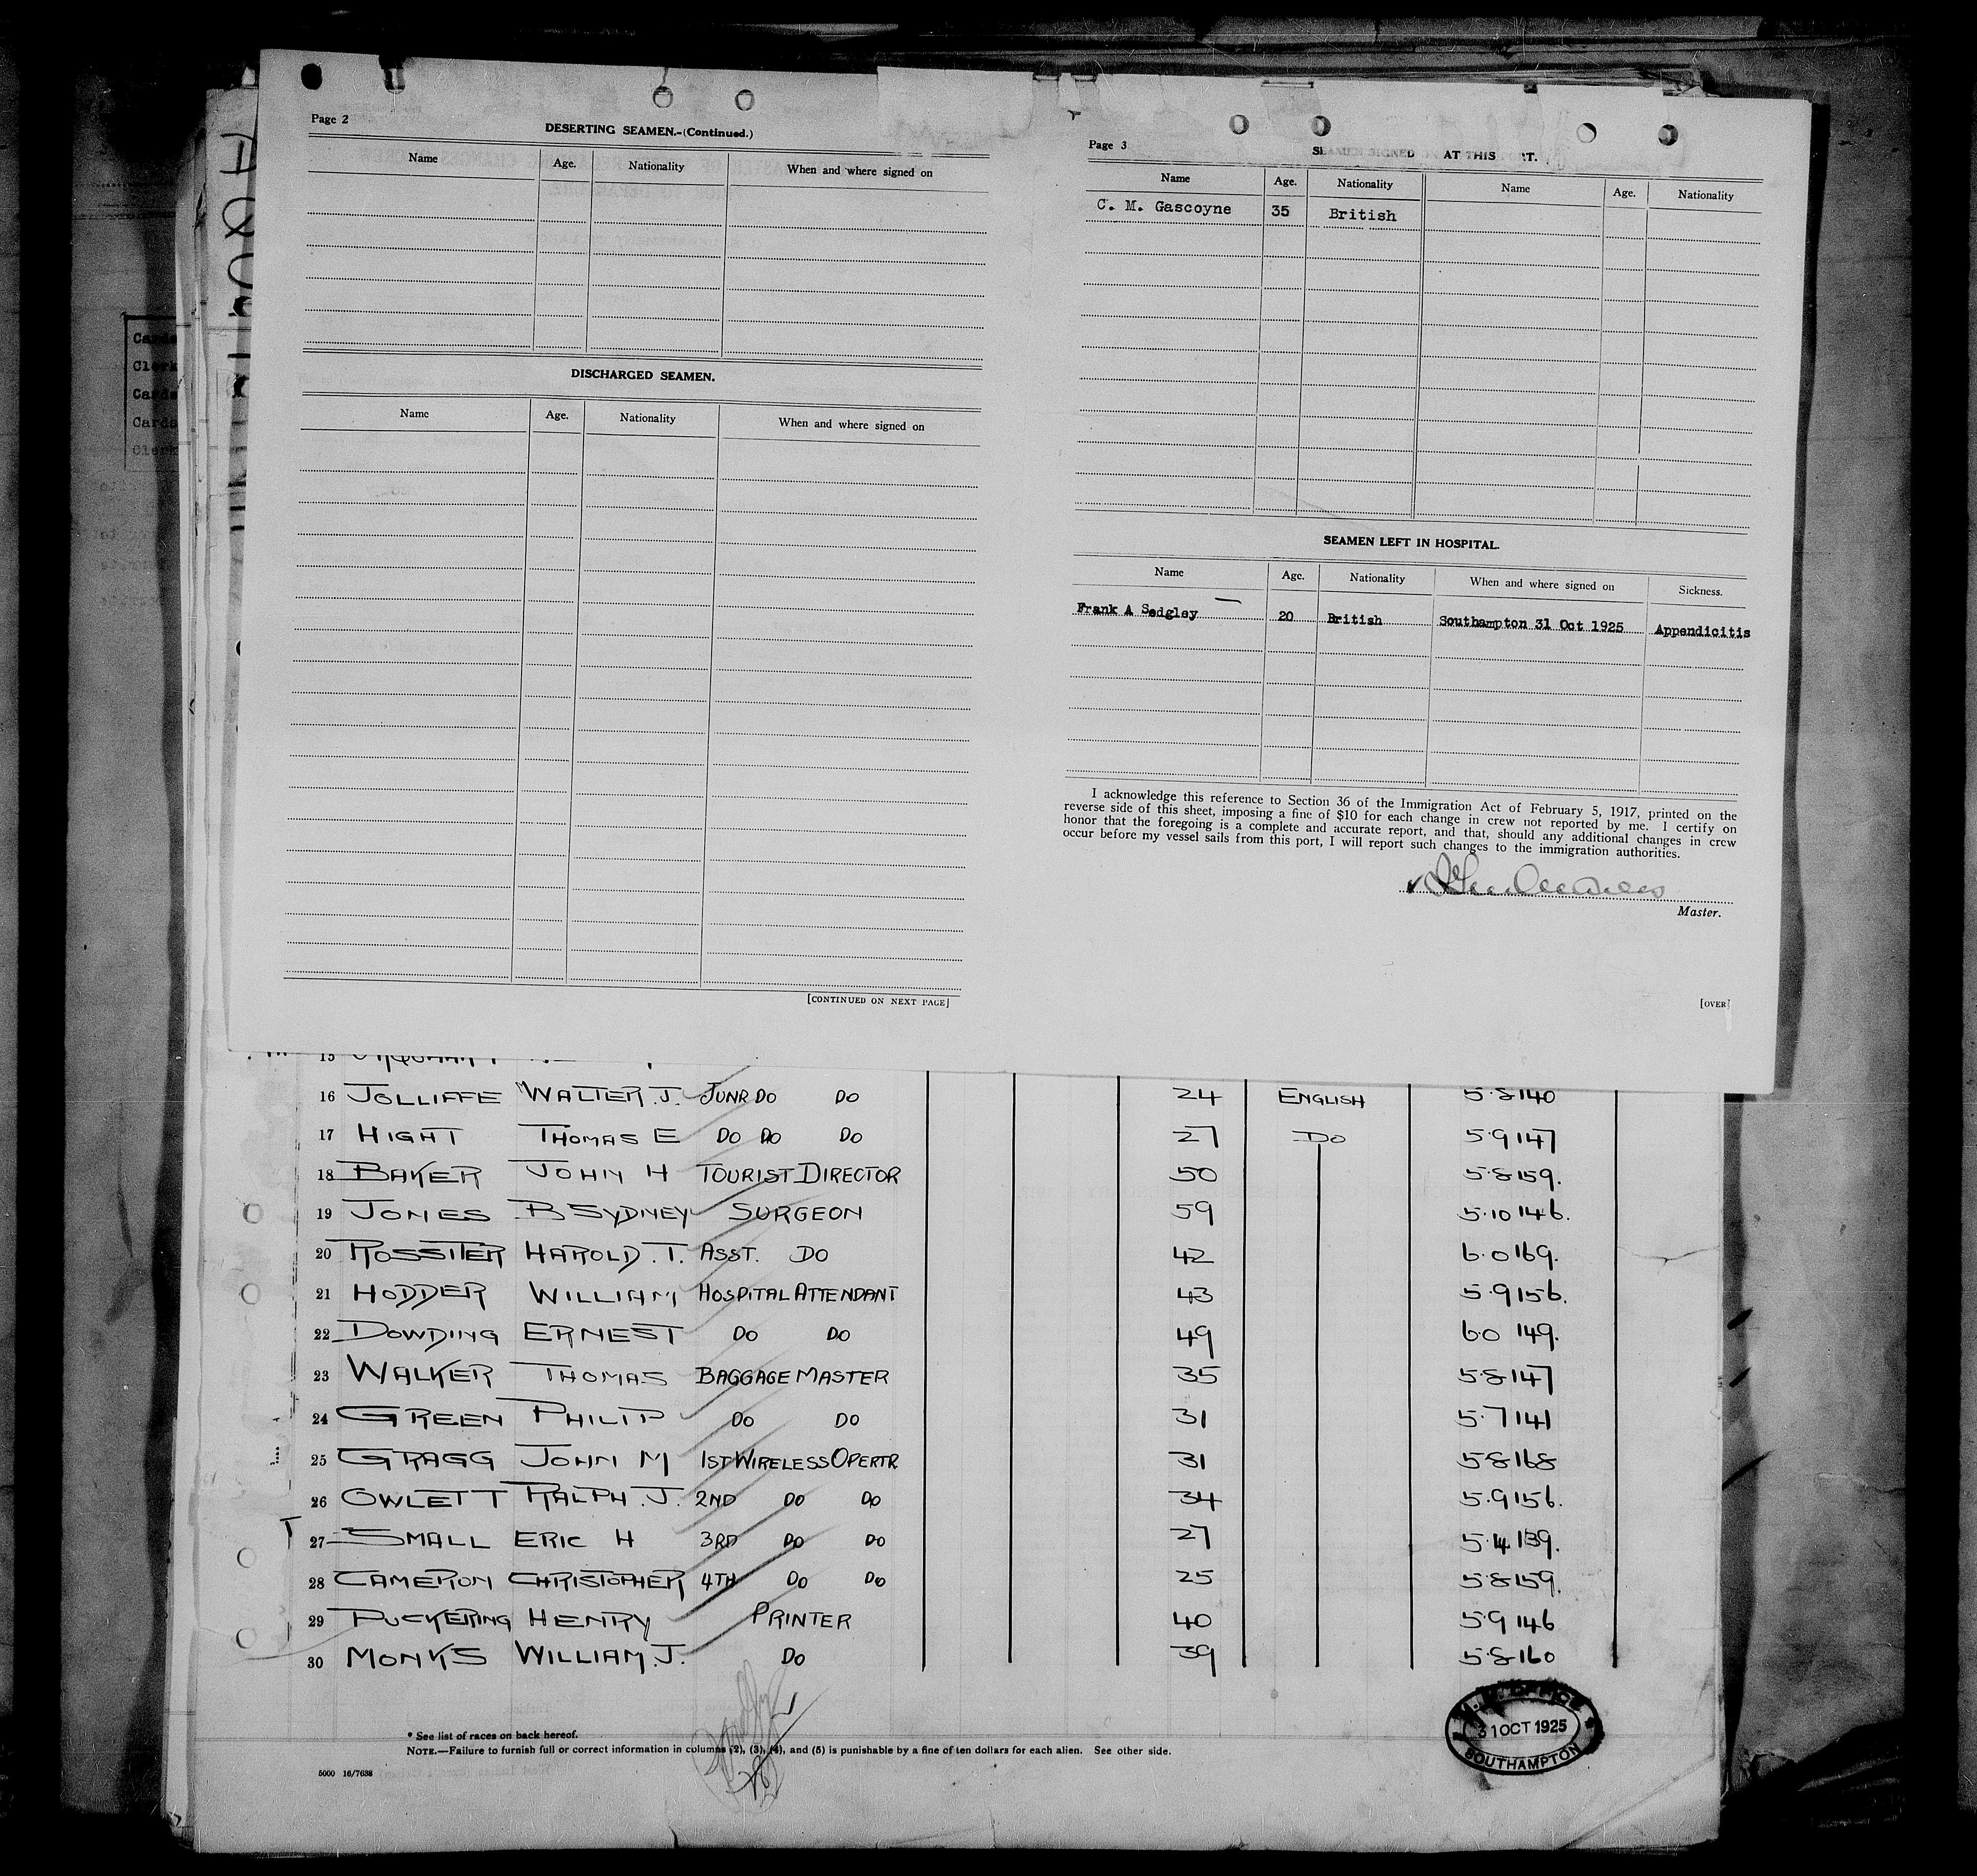 Page 2
DESERTING SEAMEN.-(Continued.)
Name Age. Nationality When and where signed on
DISCHARGED SEAMEN.
Name Age. Nationality When and where signed on
[CONTINUED ON NEXT PAGE]
Page 3
AT THIS
Name Age. Nationality Name Age. Nationality
C. M. Gascoyne 35 British
SEAMEN LEFT IN HOSPITAL.
Name Age. Nationality When and where signed on Sickness.
Frank A Sedgley 20 British Southampton 31 Oct 1925 Appendicitis
I acknowledge this reference to Section 36 of the Immigration Act of February 5, 1917, printed on the
reverse side of this sheet, imposing a fine of $10 for each change in crew not reported by me. I certify on
honor that the foregoing is a complete and accurate report, and that, should any additional changes in crew
occur before my vessel sails from this port, I will report such changes to the immigration authorities.
Master.
[OVER]
Cards
Clerk
Cards
Cards
Clerk
15
16 JOLLIFFE WALTER.J. JUNR DO DO 24 ENGLISH 5.8 140
17 HIGHT THOMAS E DO DO DO 27 DO 5.9 147
18 BAKER JOHN H TOURIST DIRECTOR 50 5.8 159.
19 JONES B SYDNEY SURGEON 59 5.10 146.
20 ROSSITER HAROLD.T. ASST. DO 42 6.0 169.
21 HODDER WILLIAM HOSPITAL ATTENDANT 43 5.9 156.
22 DOWDING ERNEST DO DO 49 6.0 149.
23 WALKER THOMAS BAGGAGE MASTER 35 5.8 147
24 GREEN PHILIP DO DO 31 5.7 141
25 GRAGG JOHN M 1ST WIRELESS OPERTR 31 5.8 168
26 OWLETT RALPH.J. 2ND DO DO 34 5.9 156.
27 SMALL ERIC H 3RD DO DO 27 5.4 139.
28 CAMERON CHRISTOPHER 4TH DO DO 25 5.8 159.
29 PUCKERING HENRY PRINTER 40 5.9 146
30 MONKS WILLIAM.J. DO 39 5.8 160
* See list of races on back hereof.
NOTE.—Failure to furnish full or correct information in columns (2), (3), (4), and (5) is punishable by a fine of ten dollars for each alien. See other side.
5000 16/7638
OFFICE
31 OCT 1925
SOUTHAMPTON